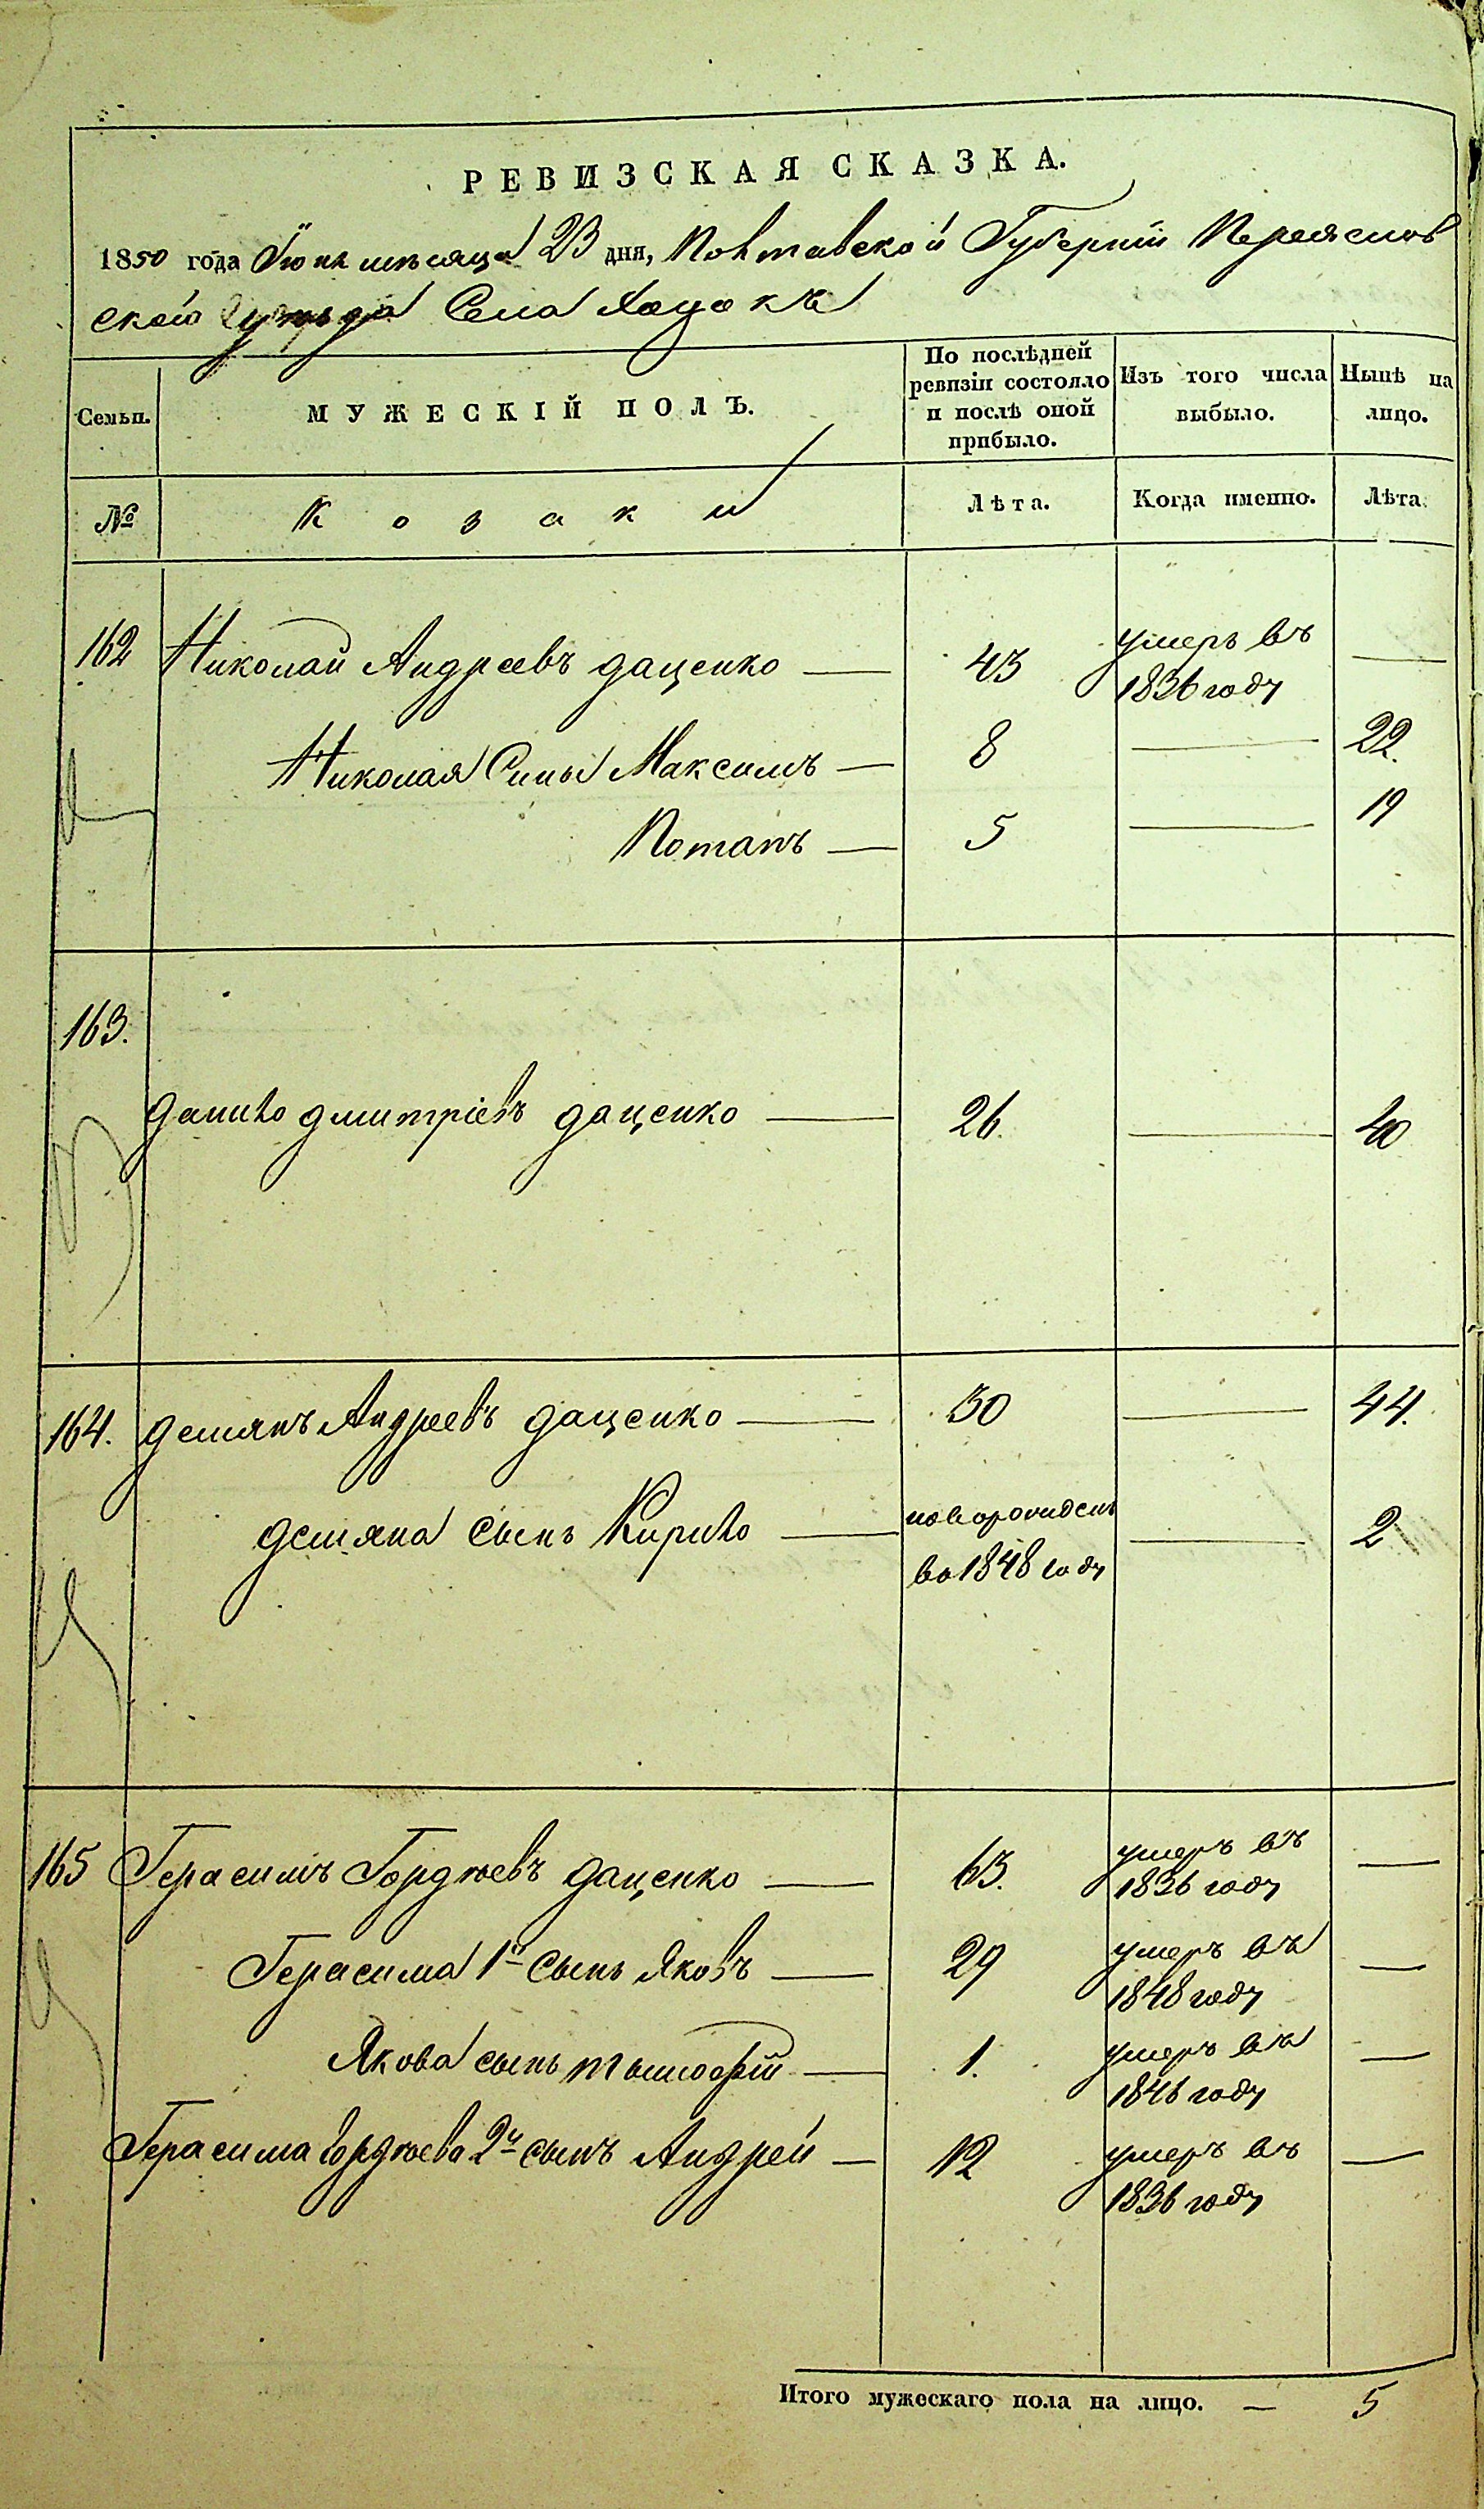 РЕВИЗСКАЯ СКАЗКА.
1850 года Іюня мѣсяца 23 дня, Полтавской Губерніи Переяслов
ской уѣзда Села Хоцокъ
Семьи. МУЖЕСКІЙ ПОЛЪ. По послѣдней ревизіи состояло и послѣ оной прибыло. Изъ того числа выбыло. Нынѣ на лицо.
№ Козаки Лѣта. Когда именно. Лѣта.
162 Николай Андреевъ даценко — 43 умеръ въ 1836 году —
Николая Сины Максимъ — 8 — 22.
Потапъ — 5 — 19
163. данило дмитріевъ даценко — 26. — 40
164. демянъ Андреевъ даценко — 30 — 44.
демяна сынъ Кирило — новорожденъ во 1848 году — 2
165 Герасимъ Гордѣевъ даценко — 63. умеръ въ 1836 году —
Герасима 1й сынъ Яковъ — 29 умеръ въ 1848 году —
Якова сынъ тымофій — 1. умеръ въ 1846 году —
Герасима Гордѣева 2й сынъ Андрей — 12 умеръ въ 1836 году —
Итого мужескаго пола на лицо. — 5